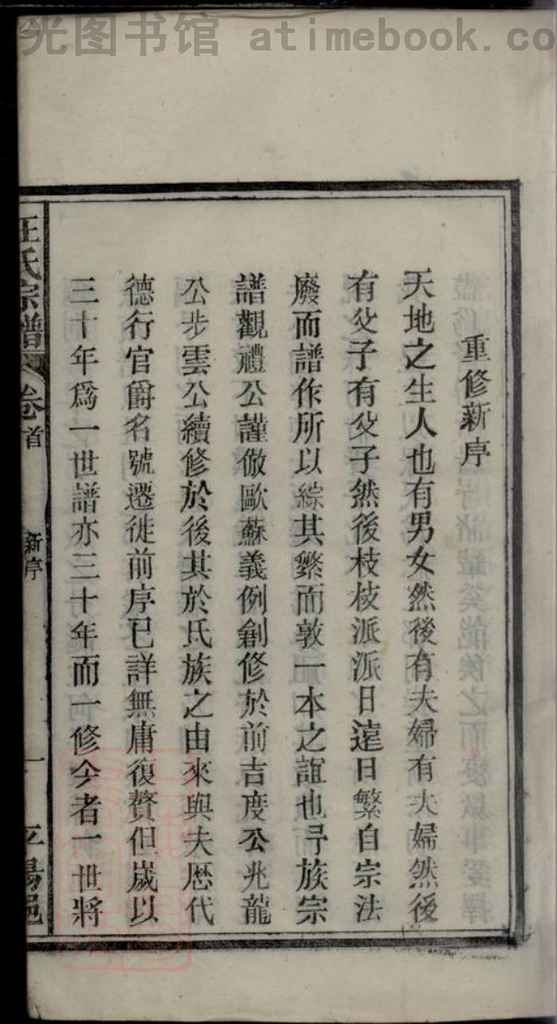 光图书馆 atimebook.co
重修新序
天地之生人也有男女然後有夫婦有夫婦然後
有父子有父子然後枝枝派派日遠日繁自宗法
廢而譜作所以綜其繁而敦一本之誼也予族宗
譜觀禮公謹倣歐蘇義例創修於前吉度公兆龍
公步雲公續修於後其於氏族之由來與夫歷代
德行官爵名號遷徙前序已詳無庸復贅但歲以
三十年爲一世譜亦三十年而一修今者一世將
汪氏宗譜 卷首 新序 一 平陽邑